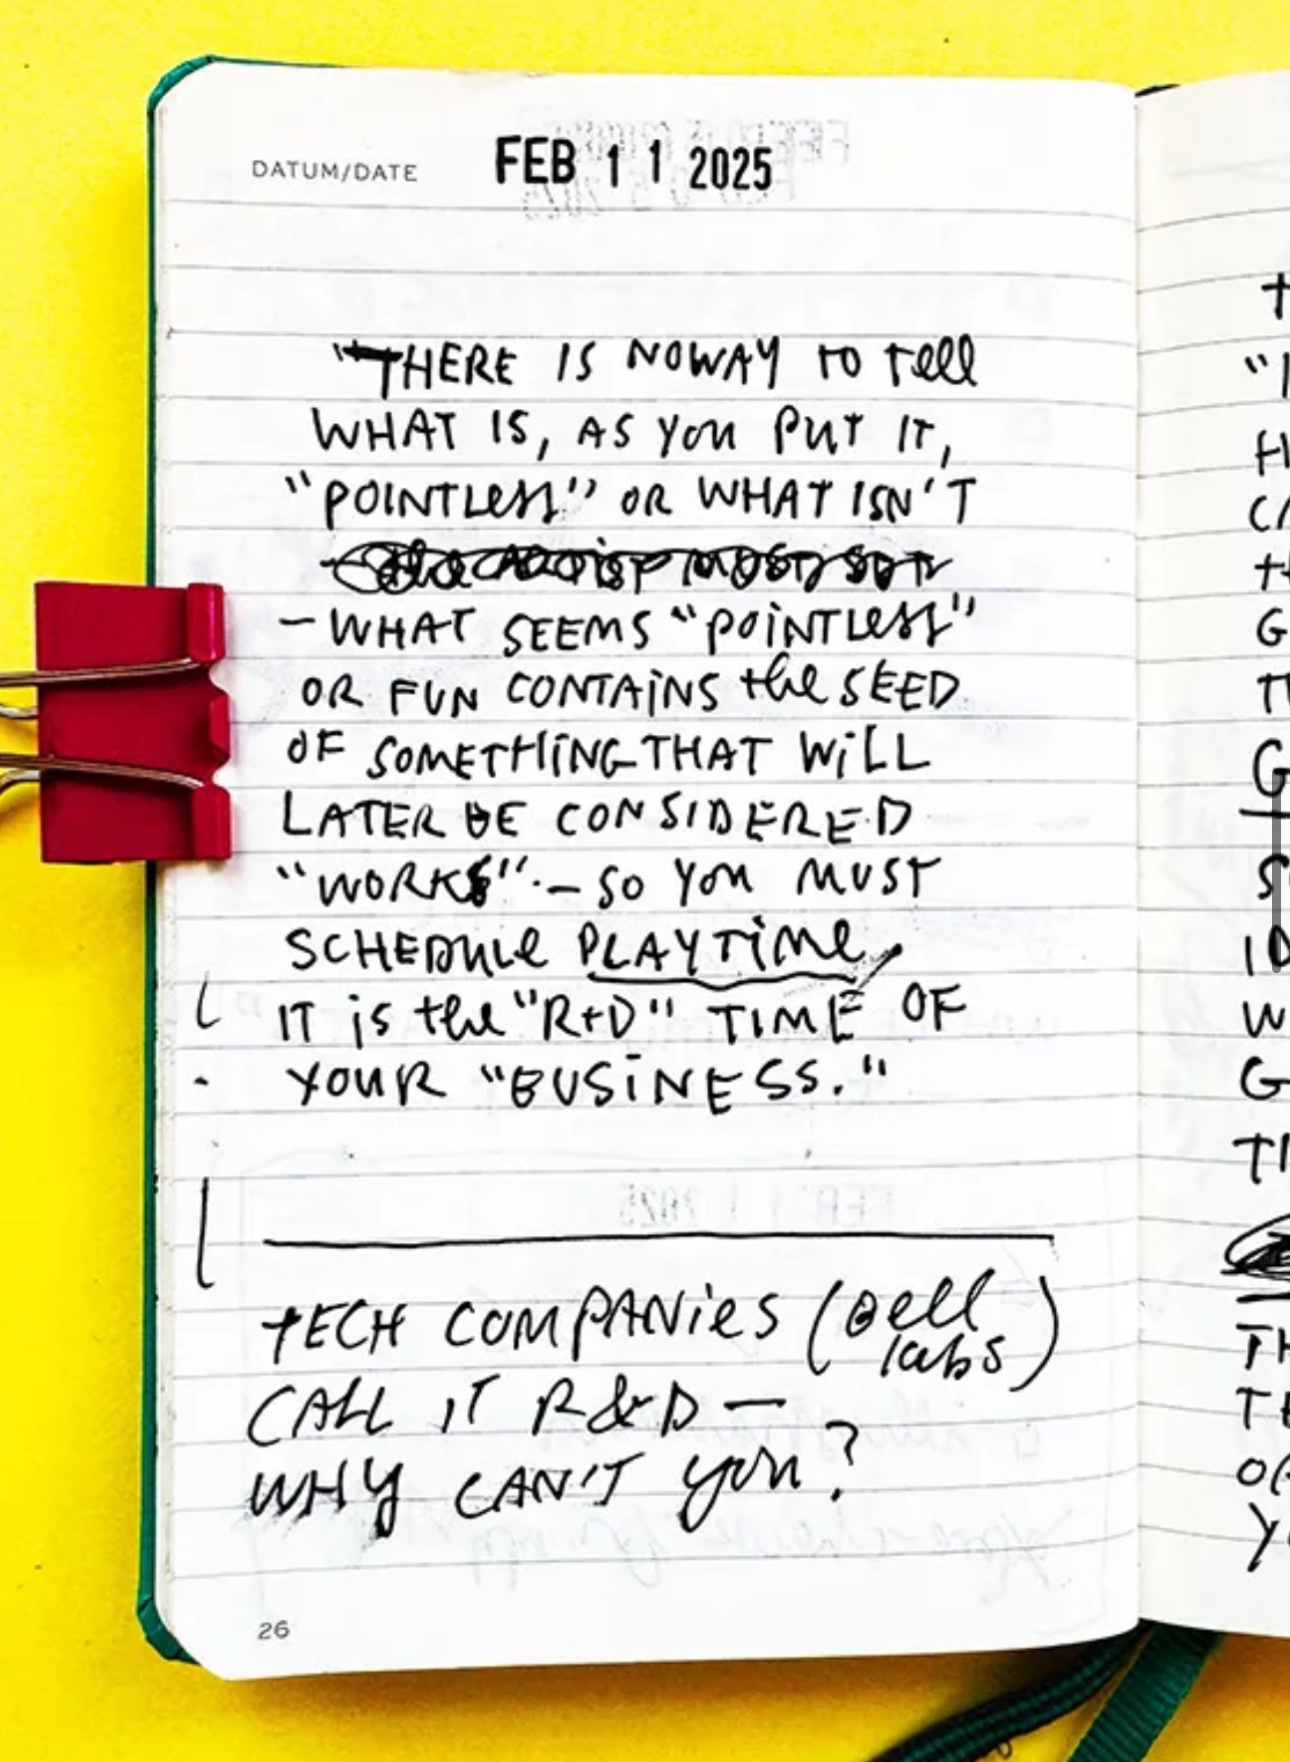 DATUM/DATE FEB 11 2025
"THERE IS NO WAY TO TELL
WHAT IS, AS YOU PUT IT,
"POINTLESS" OR WHAT ISN'T
— WHAT SEEMS "POINTLESS"
OR FUN CONTAINS the SEED
OF SOMETHING THAT WILL
LATER BE CONSIDERED
"WORK" — SO YOU MUST
SCHEDULE PLAYTIME
IT is the "R+D" TIME OF
YOUR "BUSINESS."
TECH COMPANIES (Bell
labs)
CALL IT R&D —
WHY CAN'T you?
26